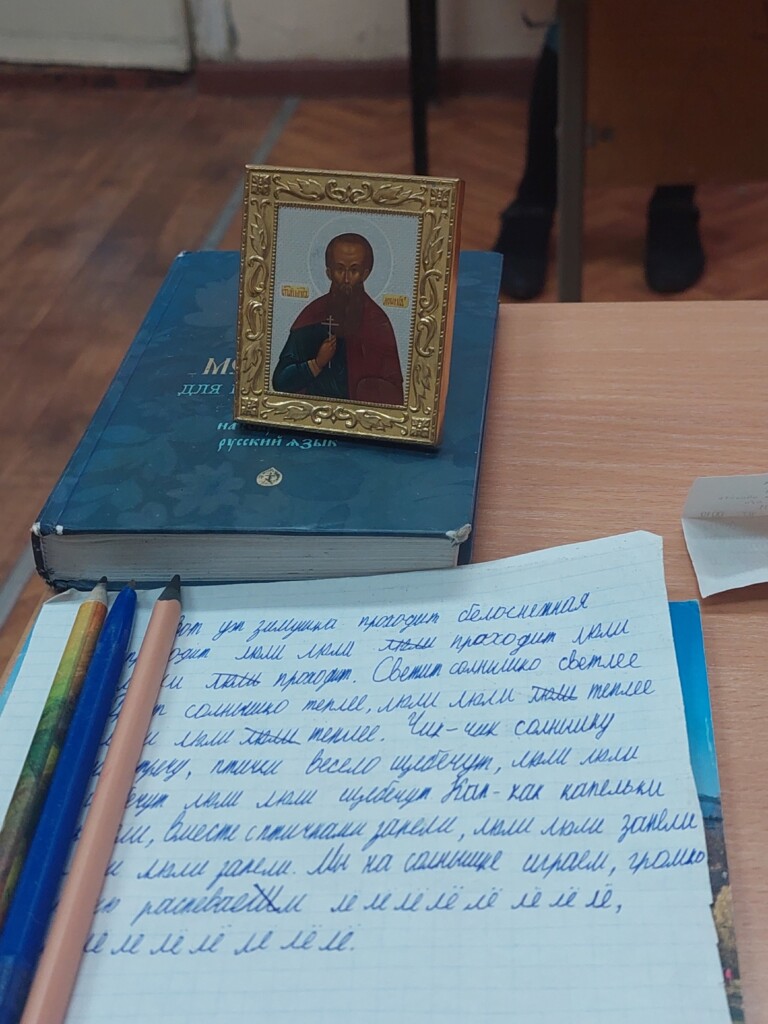 для
русский язык
вот уж зимушка проходит белоснежная
люли люли люли проходит люли
люли проходит. Светит солнышко светлее
солнышко теплее, люли люли люли теплее
люли люли теплее. Чик-чик солнышку
птички весело щебечут, люли люли
люли люли щебечут Кап-кап капельки
вместе с птичками запели, люли люли запели
люли запели. Мы на солнышце играем, громко
распеваем лё лё лё лё лё лё лё лё лё,
лё лё лё лё лё лё лё.